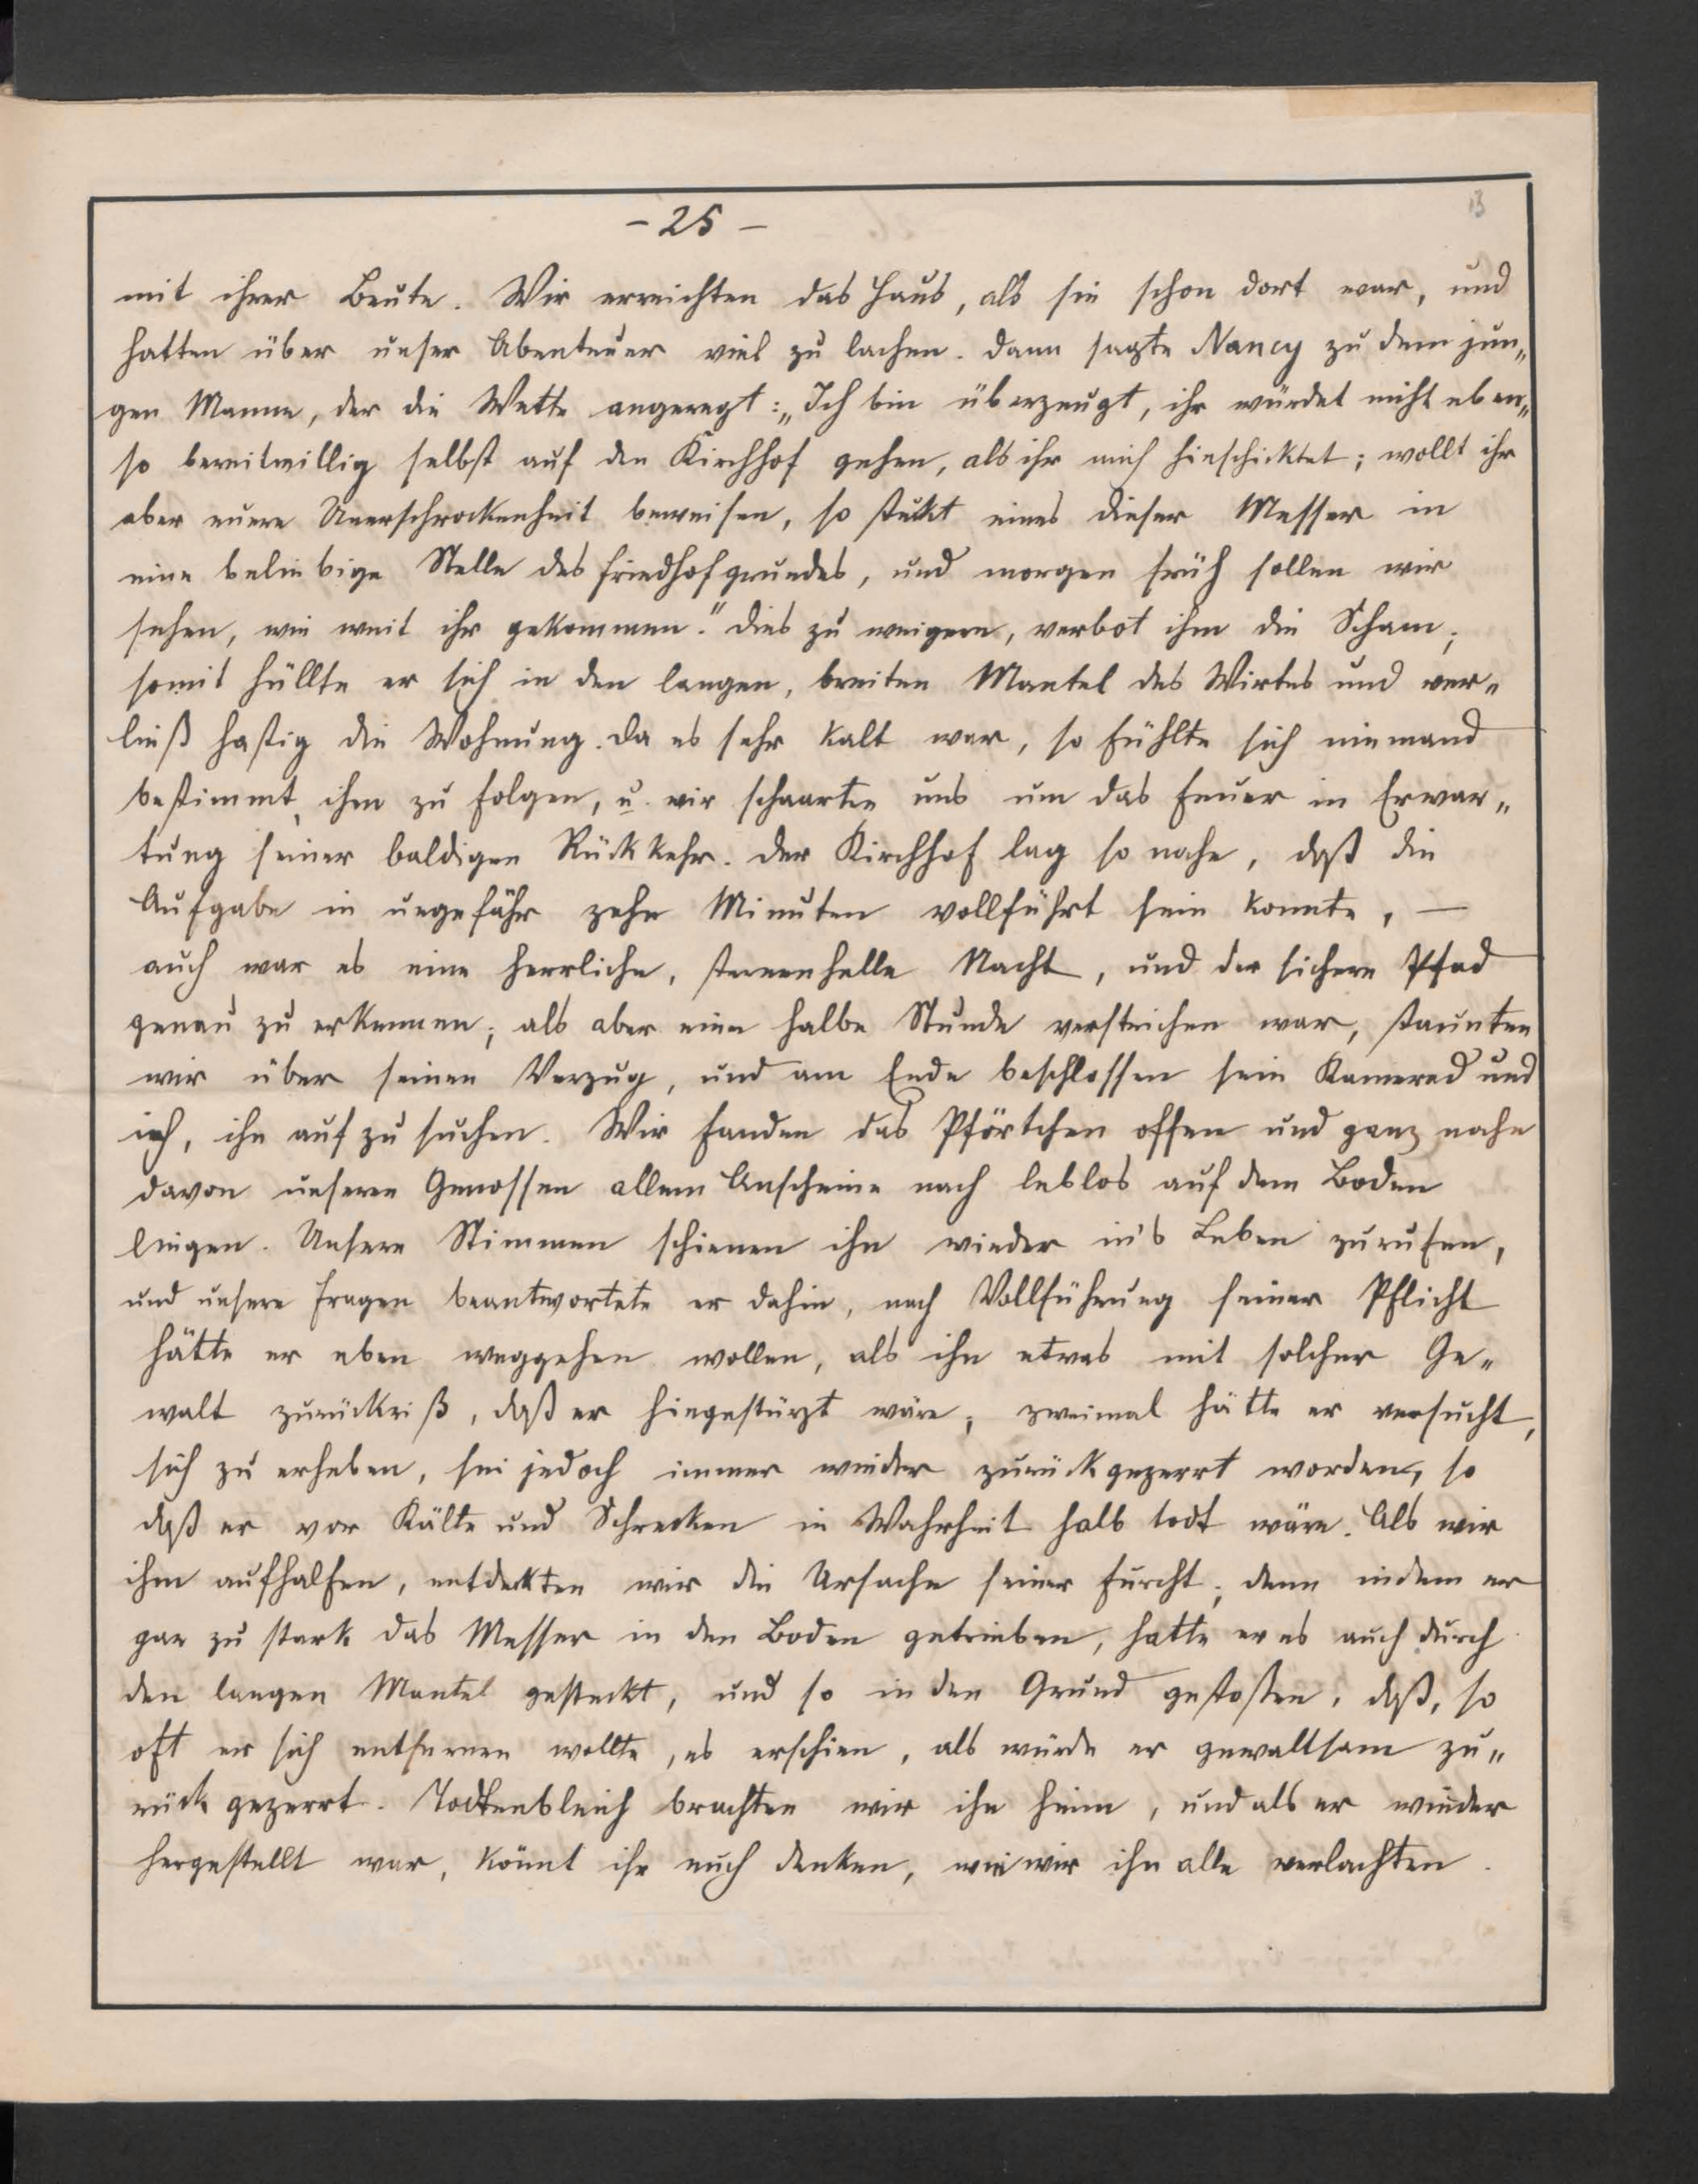 - 25 -
13
mit ihrer Beute. Wir erreichten das Haus, als sie schon dort war, und
hatten über unser Abenteuer viel zu lachen. Dann sagte Nancy zu dem jun„
gen Manne, der die Wette angeregt: „Ich bin überzeugt, ihr würdet nicht eben„
so bereitwillig selbst auf den Kirchhof gehen, als ihr mich hinschicktet; wollt ihr
aber euere Unerschrockenheit beweisen, so steckt eines dieser Messer in
eine beliebige Stelle des Friedhofgrundes, und morgen früh sollen wir
sehen, wie weit ihr gekommen." Dies zu weigern, verbot ihm die Scham;
somit hüllte er sich in den langen, breiten Mantel des Wirtes und ver„
ließ hastig die Wohnung. Da es sehr kalt war, so fühlte sich niemand
bestimmt, ihm zu folgen, u. wir schaarten uns um das Feuer in Erwar„
tung seiner baldigen Rückkehr. Der Kirchhof lag so nahe, daß die
Aufgabe in ungefähr zehn Minuten vollführt sein konnte, —
auch war es eine herrliche, sternenhelle Nacht, und der sichere Pfad
genau zu erkennen; als aber eine halbe Stunde verstrichen war, staunten
wir über seinen Verzug, und am Ende beschlossen sein Kamerad und
ich, ihn aufzusuchen. Wir fanden das Pförtchen offen und ganz nahe
davon unseren Genossen allem Anscheine nach leblos auf dem Boden
liegen. Unsere Stimmen schienen ihn wieder in's Leben zurufen,
und unsere Fragen beantwortete er dahin, nach Vollführung seiner Pflicht
hätte er eben weggehen wollen, als ihn etwas mit solcher Ge„
walt zurückriß, daß er hingestürzt wäre; zweimal hätte er versucht,
sich zu erheben, sei jedoch immer wieder zurückgezerrt worden, so
daß er vor Kälte und Schrecken in Wahrheit halb todt wäre. Als wir
ihm aufhalfen, entdeckten wir die Ursache seiner Furcht; denn indem er
gar zu stark das Messer in den Boden getrieben, hatte er es auch durch
den langen Mantel gesteckt, und so in den Grund gestoßen, daß, so
oft er sich entfernen wollte, es erschien, als würde er gewaltsam zu„
rück gezerrt. Todtenbleich brachten wir ihn heim, und als er wieder
hergestellt war, könnt ihr euch denken, wie wir ihn alle verlachten.